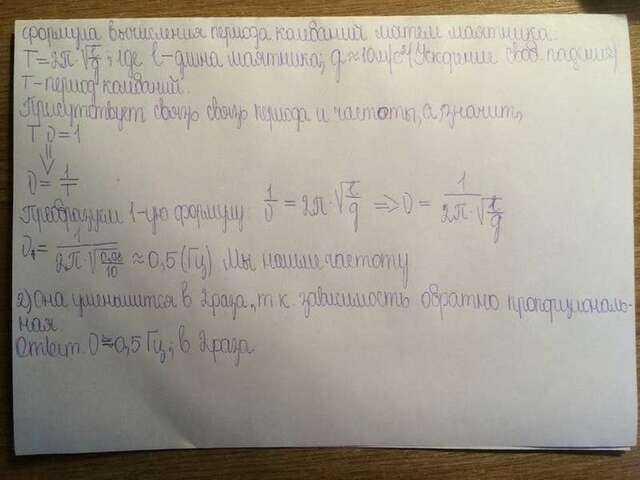 Формула вычисления периода колебаний матем маятника.
T = 2π · √(l/g); где l - длина маятника; g ≈ 10 м/с² (Ускорение своб. падения)
T - период колебаний.
Присутствует связь связь периода и частоты, а, значит,
T υ = 1
⇓
υ = 1/T
Преобразуем 1-ую формулу: 1/υ = 2π · √(l/g) => υ = 1/(2π · √(l/g))
≈ 0,5 (Гц). Мы нашли частоту
2) Она уменьшится в 2 раза, т к зависимость обратно пропорциональ-
ная
Ответ. υ ≈ 0,5 Гц; в 2 раза.